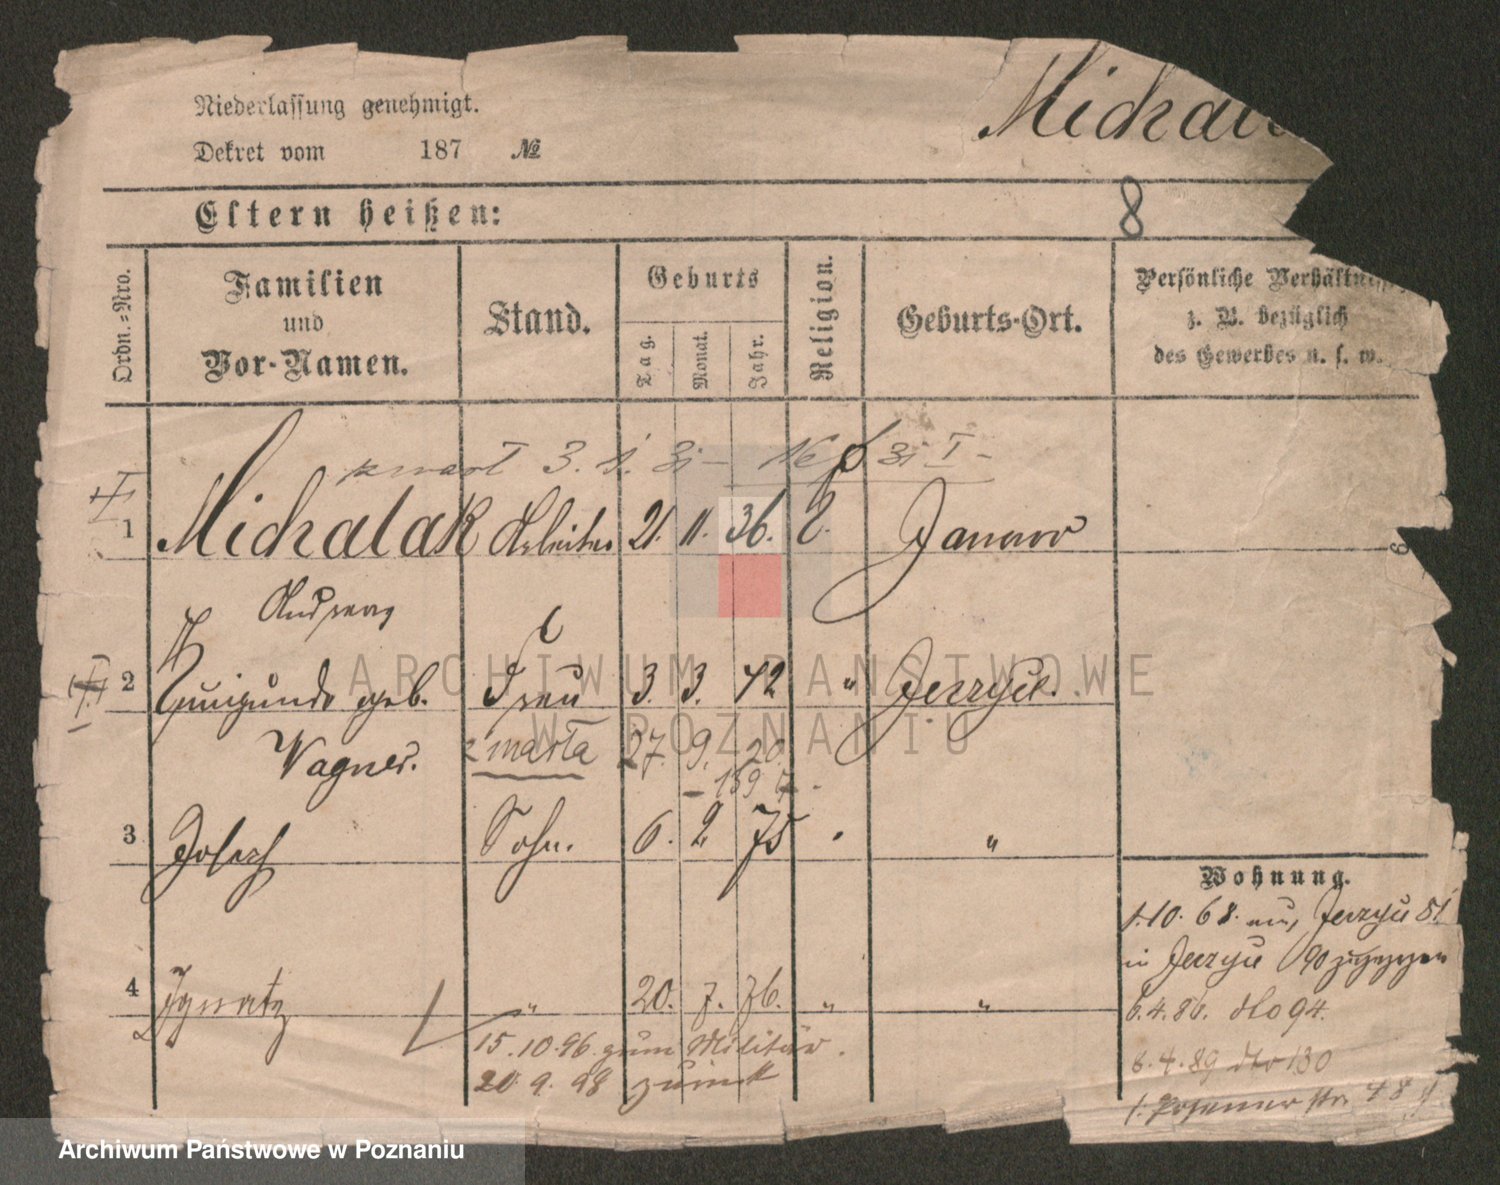 Niederlassung genehmigt.
Michala
Dekret vom 187 №
Eltern heißen:
8
Ordn.-Nro.
Familien und Vor-Namen.
Stand.
Geburts
Tag.
Monat.
Jahr.
Religion.
Geburts-Ort.
Persönliche Verhältnisse
z. B. bezüglich
des Gewerbes u. s. w.
3. 1.
I
1 Michalak Arbeiter 21. 11. 36. Janowo
Andreas
2 Kunigunde geb. Frau 3. 3. 42 " Jerzyce.
Wagner. zmarła 27. 9. 20.
3 Josef Sohn. 6. 2 75 "
4 Ignatz " 20. 7. 76. " "
15.10.96 zum Militär.
20.9.98 zurück
Wohnung.
1.10.68. aus Jerzyce 81
in Jerzyce 90 zugezogen
6.4.86. dto 94.
6.4.89 dto 130
Posenerstr. 48
ARCHIWUM PAŃSTWOWE
W POZNANIU
Archiwum Państwowe w Poznaniu